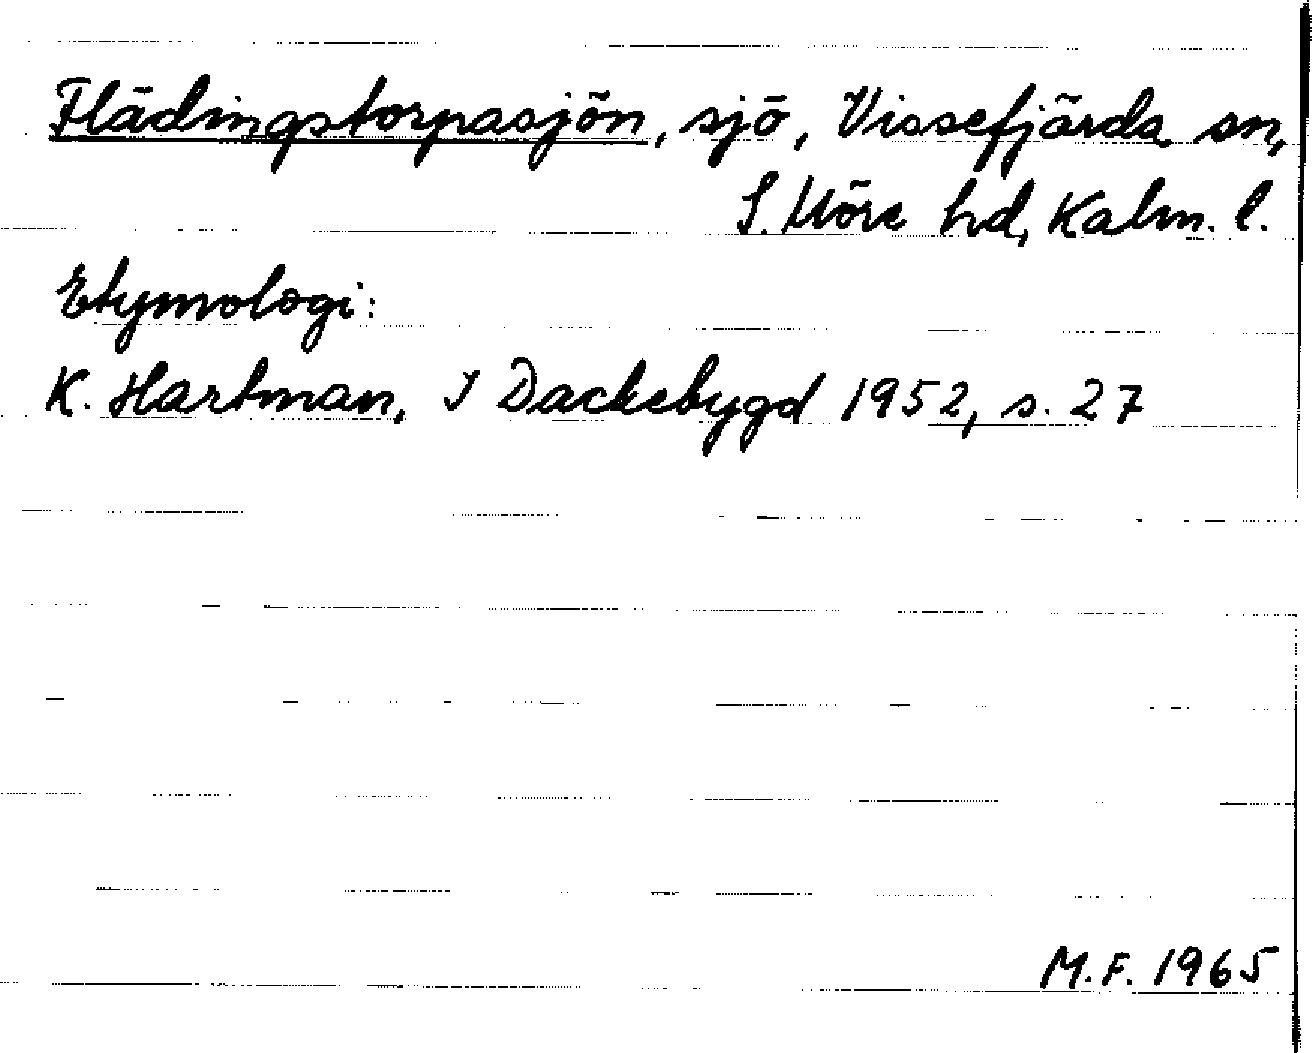 Flädingstorpasjön, sjö, Vissefjärda sn,
S. Möre hd, Kalm. l.
Etymologi:
K. Hartman, I Dackebygd 1952, s. 27
M.F. 1965